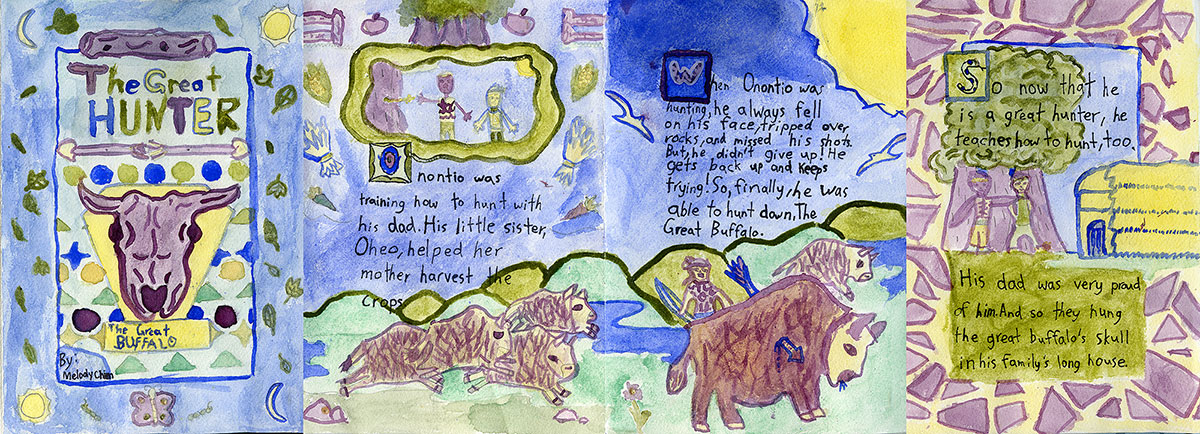 The Great
HUNTER
The Great
BUFFALO
By:
Melody Chan
Onontio was
training how to hunt with
his dad. His little sister,
Oheo, helped her
mother harvest the
Crops
When Onontio was
hunting, he always fell
on his face, tripped over
rocks, and missed his shots.
But, he didn't give up! He
gets back up and keeps
trying! So, finally, he was
able to hunt down, The
Great Buffalo.
So now that he
is a great hunter, he
teaches how to hunt, too.
His dad was very proud
of him. And so they hung
the great buffalo's skull
in his family's long house.